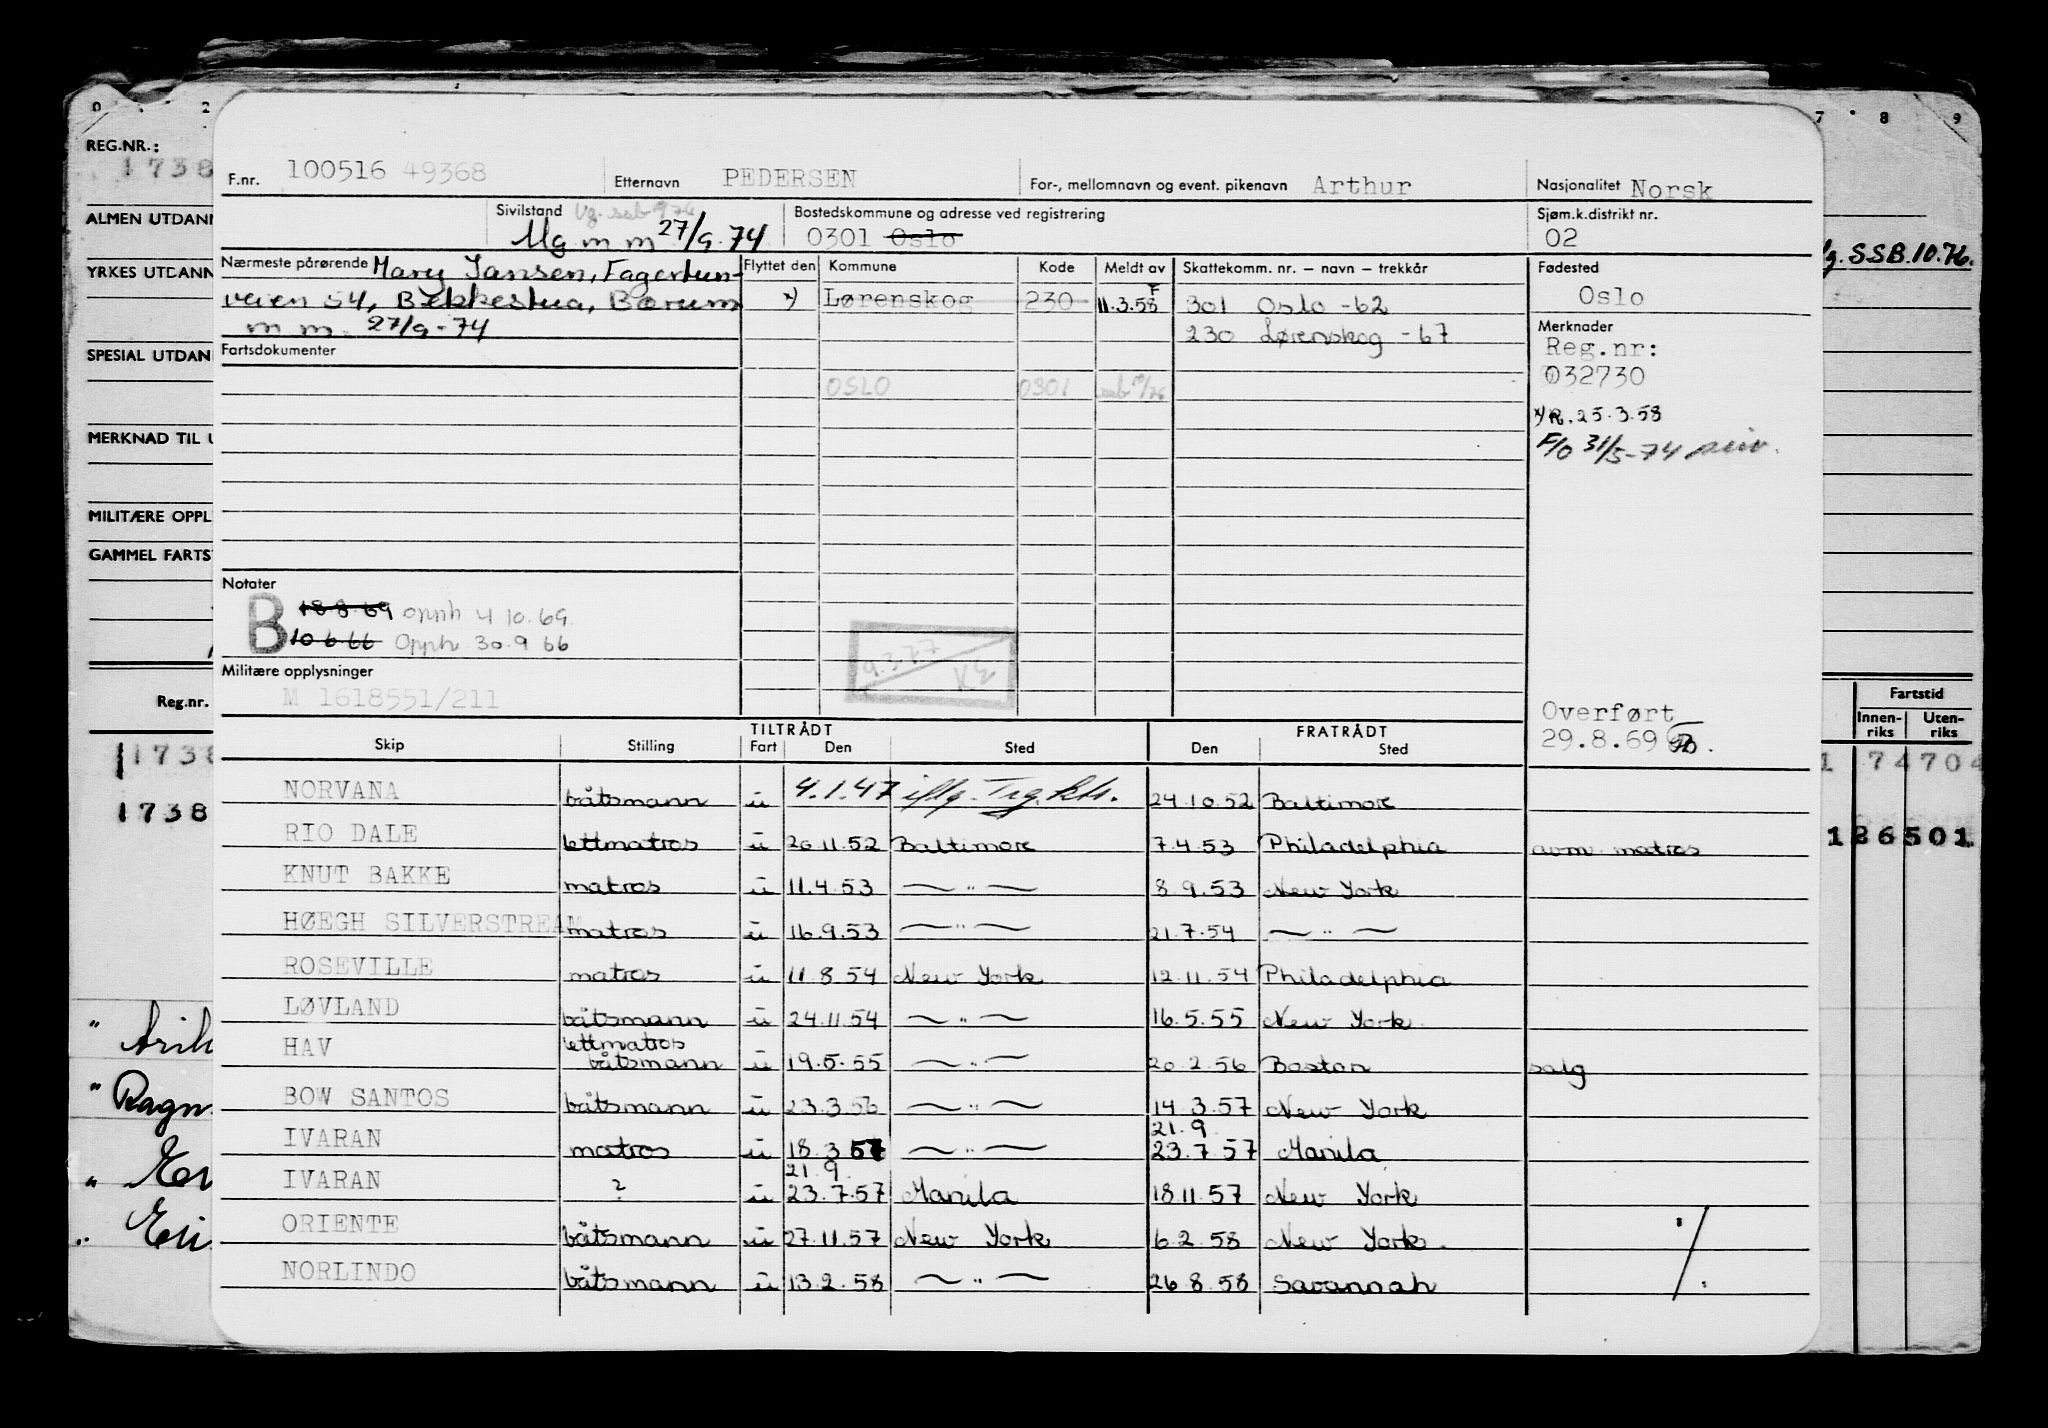 0 2 7 8 9
REG.NR.:
1738
ALMEN UTDANN
YRKES UTDANN
SPESIAL UTDAN
MERKNAD TIL U
MILITÆRE OPPL
GAMMEL FARTS
Reg.nr.
1738
1738
" Ragn
S.S.B. 10.76.
Fartstid
Innen-riks Uten-riks
1 74704
126501
F.nr. 100516 49368 Etternavn PEDERSEN For-, mellomnavn og event. pikenavn Arthur Nasjonalitet Norsk
Sivilstand Ug. ssb 976 Bostedskommune og adresse ved registrering Sjøm.k.distrikt nr.
Ug m m 27/9.74 0301 Oslo 02
Nærmeste pårørende Mary Jansen, Fagertun- Flyttet den Kommune Kode Meldt av Skattekomm. nr. – navn – trekkår Fødested
veien 54, Bekkestua, Bærum x) Lørenskog 230 F 11.3.58 301 Oslo -62 Oslo
m m. 27/9-74 230 Lørenskog -67 Merknader
Fartsdokumenter Reg.nr:
OSLO 0301 ssb 10/76 032730
x) R. 25.3.58
F/O 31/5-74
Notater
B 18.8.69 opph 4 10.69.
10.6.66 Opph 30.9 66
9.3.77 KE
Militære opplysninger
M 1618551/211
Overført
29.8.69
TILTRÅDT FRATRÅDT
Skip Stilling Fart Den Sted Den Sted
NORVANA båtsmann u 4.1.47 iflg. Trg.kls. 24.10.52 Baltimore
RIO DALE lettmatros u 20.11.52 Baltimore 7.4.53 Philadelphia avm matros
KNUT BAKKE matros u 11.4.53 — " — 8.9.53 New York
HØEGH SILVERSTREAM matros u 16.9.53 — " — 21.7.54 — " —
ROSEVILLE matros u 11.8.54 New York 12.11.54 Philadelphia
LØVLAND båtsmann u 24.11.54 — " — 16.5.55 New York
HAV lettmatros båtsmann u 19.5.55 — " — 20.2.56 Boston salg
BOW SANTOS båtsmann u 23.3.56 — " — 14.3.57 New York
IVARAN matros u 18.3.57 — " — 21.9 23.7.57 Manila
IVARAN ? u 21.9. 23.7.57 Manila 18.11.57 New York
ORIENTE båtsmann u 27.11.57 New York 6.2.58 New York
NORLINDO båtsmann u 13.2.58 — " — 26.8.58 Savannah